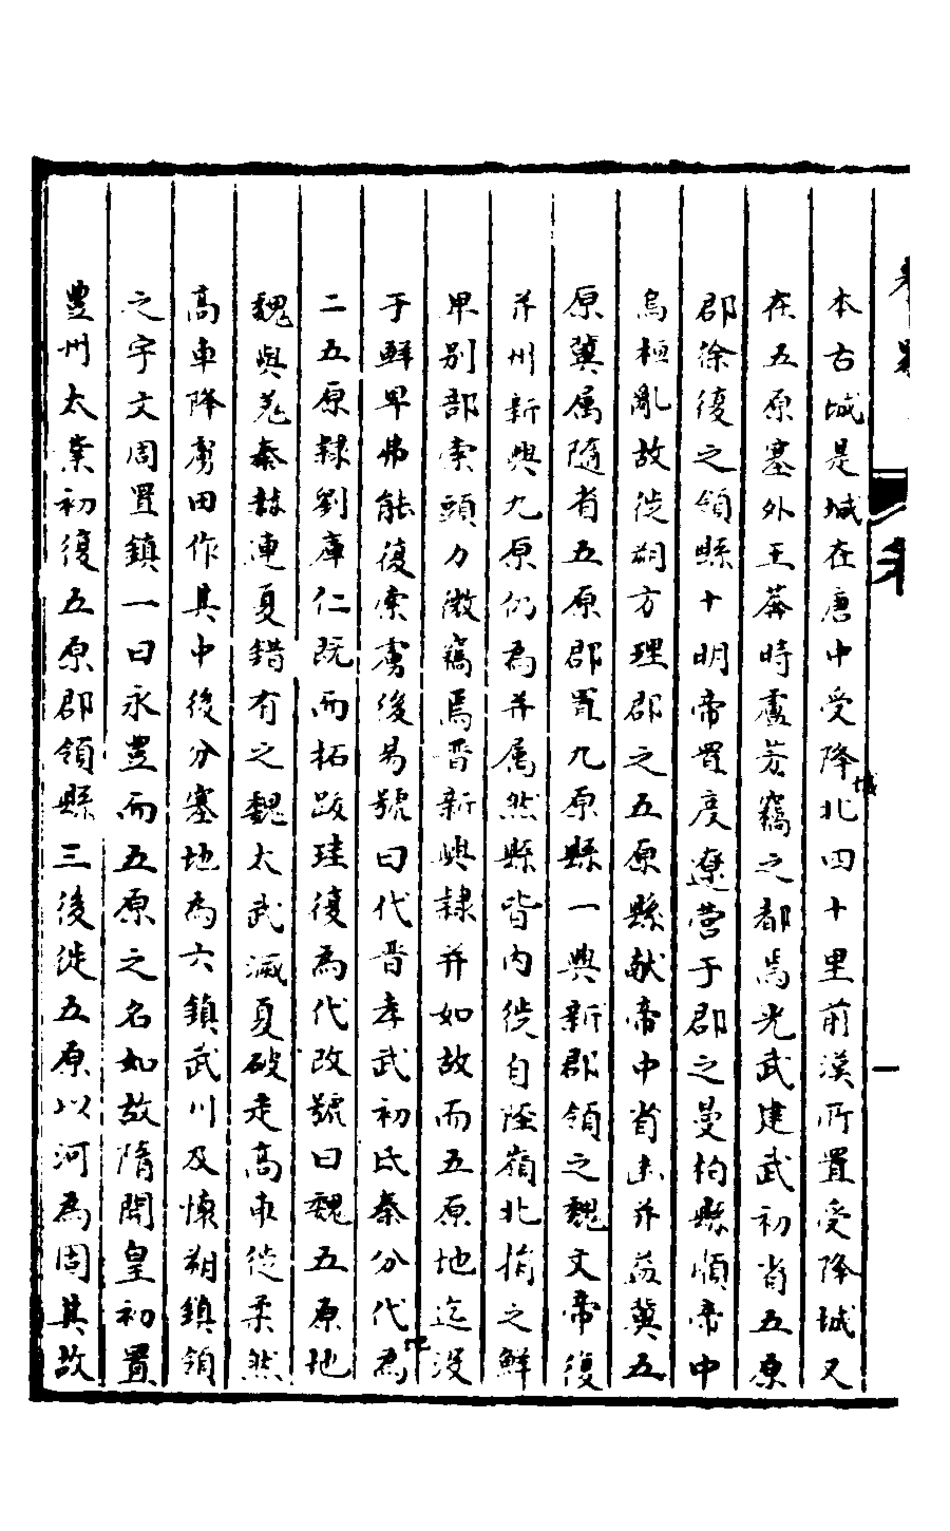 本古城是城在唐中受降城北四十里前漢所置受降城又
在五原塞外王莽時盧芳竊之都焉光武建武初省五原
郡徐復之領縣十明帝置度遼营于郡之曼柏縣順帝中
烏桓亂故徙朔方理郡之五原縣献帝中省幽并益冀五
原冀属隨省五原郡置九原縣一興新郡領之魏文帝復
并州新興九原仍為并属然縣皆内徙自陘嶺北捐之鮮
卑别部索頭力微竊焉晋新興隷并如故而五原地迄没
于鮮卑弗能復索虜後易號曰代晋孝武初氏秦分代為
二五原隷劉庫仁既而柘跋珪復為代改號曰魏五原地
魏與羌秦赫連夏錯有之魏太武滅夏破走高車徙柔然
高車降虜田作其中後分塞地為六鎮武川及懷朔鎮領
之宇文周置鎮一曰永豊而五原之名如故隋開皇初置
豊州太業初復五原郡領縣三後徙五原以河為固其故